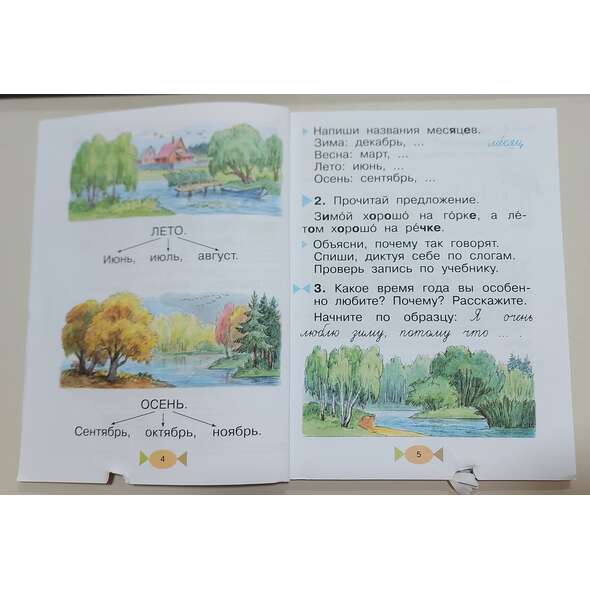 ЛЕТО.
Июнь, июль, август.
ОСЕНЬ.
Сентябрь, октябрь, ноябрь.
4
Напиши названия месяцев.
Зима: декабрь, ... ме́сяц
Весна: март, ...
Лето: июнь, ...
Осень: сентябрь, ...
2. Прочитай предложение.
Зимо́й хорошо́ на го́рке, а ле́-
том хорошо́ на ре́чке.
Объясни, почему так говорят.
Спиши, диктуя себе по слогам.
Проверь запись по учебнику.
3. Какое время года вы особен-
но любите? Почему? Расскажите.
Начните по образцу: Я очень
люблю зиму, потому что ... .
5